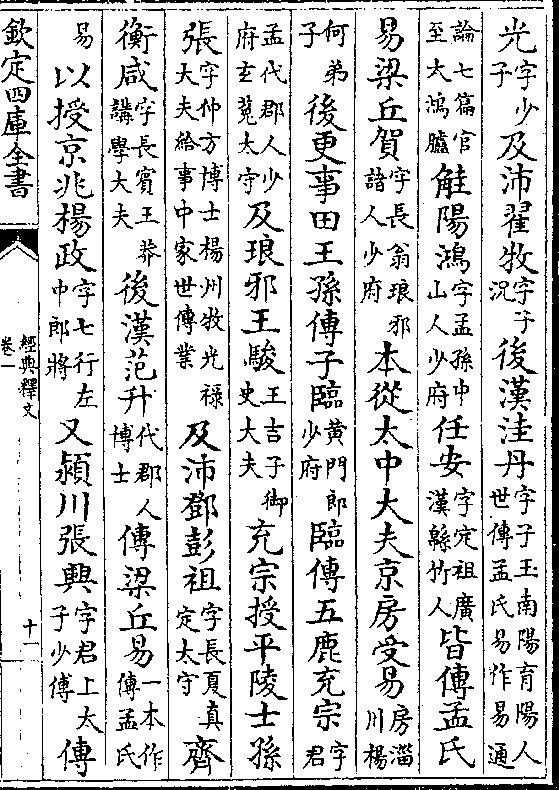 光字少子及沛翟牧字子况後漢洼丹字子玉南陽育陽人世傳孟氏易作易通
論七篇官至大鴻臚觟陽鴻字孟孫中山人少府任安字定祖廣漢緜竹人皆傳孟氏
易梁丘賀字長翁琅邪諸人少府本從太中大夫京房受易房淄川楊
何弟子後更事田王孫傳子臨黄門郎少府臨傳五鹿充宗字君
孟代郡人少府玄菟太守及琅邪王駿王吉子御史大夫充宗授平陵士孫
張字仲方博士楊州牧光禄大夫給事中家世傳業及沛鄧彭祖字長夏真定太守齊
衡咸字長賓王莽講學大夫後漢范升代郡人博士傳梁丘易一本作傳孟氏
易以授京兆楊政字七行左中郎將又潁川張興字君上太子少傅傳
欽定四庫全書
經典釋文
卷一
十一